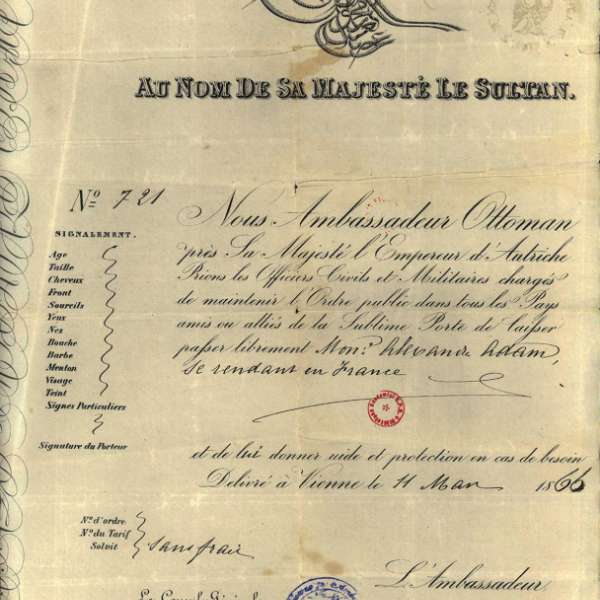 AU NOM DE SA MAJESTÉ LE SULTAN.
Nº 721
Nous Ambassadeur Ottoman
SIGNALEMENT.
près Sa Majesté l'Empereur d'Autriche
Prions les Officiers Civils et Militaires chargés
de maintenir l'Ordre public dans tous les Pays
amis ou alliés de la Sublime Porte de laisser
passer librement Monr. Alexandre Adam,
se rendant en France
Age
Taille
Cheveux
Front
Sourcils
Yeux
Nez
Bouche
Barbe
Menton
Visage
Teint
Signes Particuliers
Signature du Porteur
et de lui donner aide et protection en cas de besoin
Délivré à Vienne le 11 Mars 1866
Nº. d'ordre
Nº. du Tarif
Solvit
sans frais
L'Ambassadeur